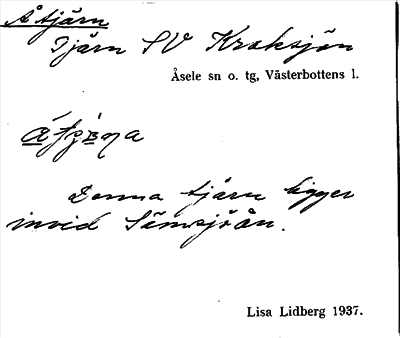 Åtjärn
Tjärn SV Kroksjön
Åsele sn o. tg, Västerbottens l.
Denna tjärn ligger
invid Sämsjöån.
Lisa Lidberg 1937.